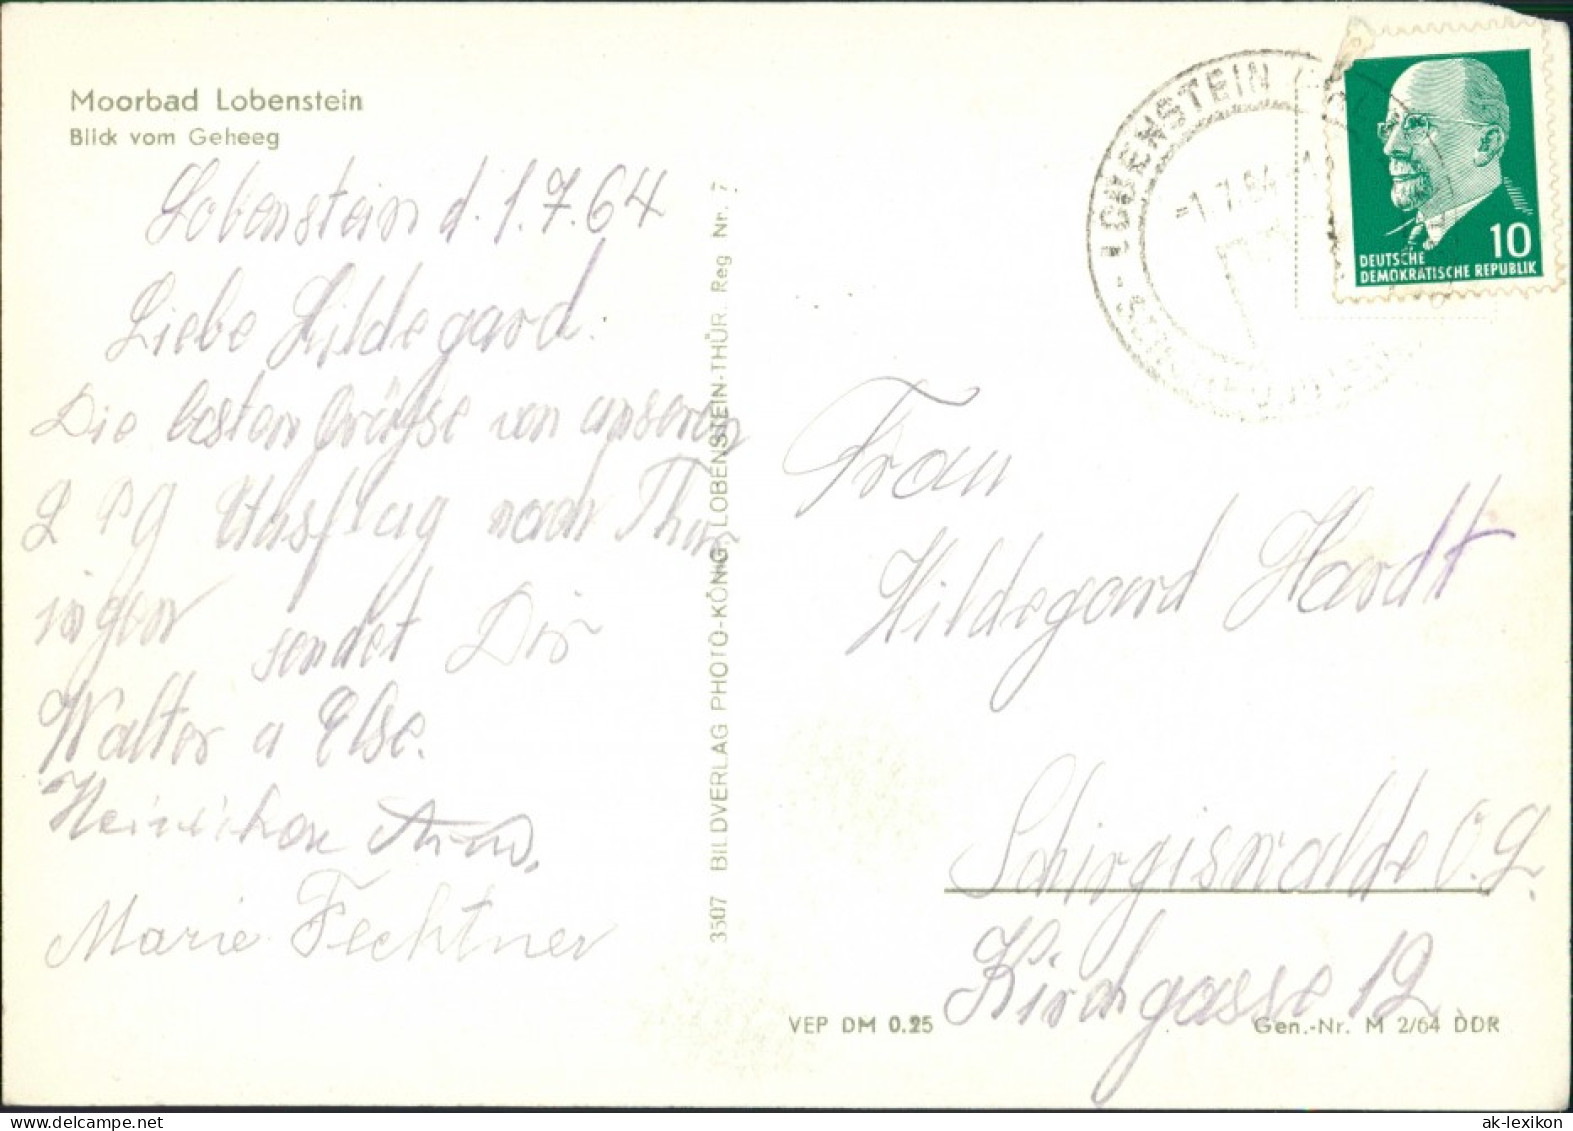 Moorbad Lobenstein
Blick vom Geheeg
Lobenstein d. 1.7.64
Liebe Hildegard.
Die besten Grüsse von unseren
L P G Ausflug nach Thür
ingen sendet Dir
Walter u Else.
Marie Fechtner
3507 BILDVERLAG PHOTO-KÖNIG, LOBENSTEIN-THÜR. Reg Nr. 7
LOBENSTEIN
-1.7.64
10
DEUTSCHE
DEMOKRATISCHE REPUBLIK
Frau
Hildegard Hardt
Schirgiswalde O.L.
Kirchgasse 12
VEP DM 0.25
Gen.-Nr. M 2/64 DDR
ak-lexikon